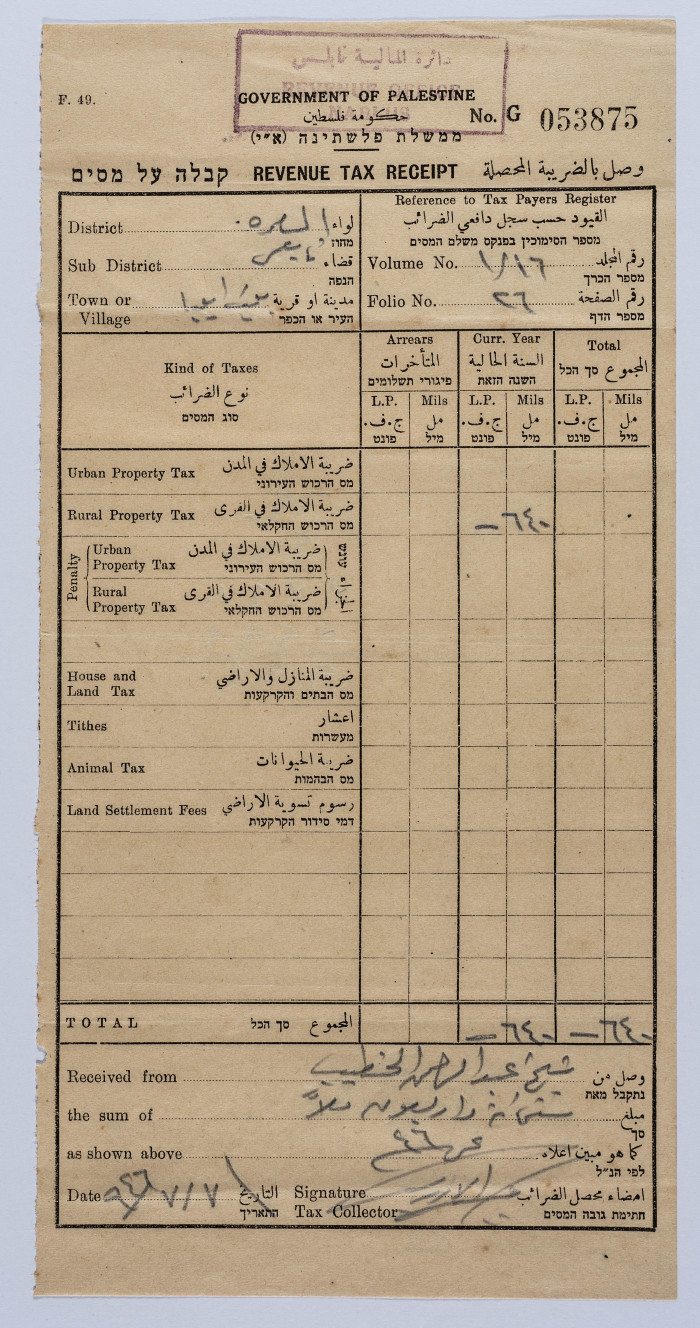 دائرة المالية نابلس
REVENUE OFFICE
F. 49.
GOVERNMENT OF PALESTINE
حكومة فلسطين
No. G 053875
ממשלת פלשתינה (א״י)
קבלה על מסים REVENUE TAX RECEIPT وصل بالضريبة المحصلة
Reference to Tax Payers Register
القيود حسب سجل دافعي الضرائب
מספר הסימוכין בפנקס משלם המסים
District السامره لواء
מחוז
Sub District نابلس قضاء
הנפה
Town or Village مدينة او قرية
העיר או הכפר
Volume No. ١/١٦ رقم المجلد
מספר הכרך
Folio No. ٢٦ رقم الصفحة
מספר הדף
Kind of Taxes
نوع الضرائب
סוג המסים
Arrears
المتأخرات
פיגורי תשלומים
Curr. Year
السنة الحالية
השנה הזאת
Total
المجموع סך הכל
L.P. Mils L.P. Mils L.P. Mils
ج.ف. مل ج.ف. مل ج.ف. مل
פונט מיל פונט מיל פונט מיל
Urban Property Tax ضريبة الاملاك في المدن
מס הרכוש העירוני
Rural Property Tax ضريبة الاملاك في القرى
מס הרכוש החקלאי
— ٦٤٠
Penalty
Urban Property Tax ضريبة الاملاك في المدن
מס הרכוש העירוני
Rural Property Tax ضريبة الاملاك في القرى
מס הרכוש החקלאי
עונש
House and Land Tax ضريبة المنازل والاراضي
מס הבתים והקרקעות
Tithes اعشار
מעשרות
Animal Tax ضريبة الحيوانات
מס הבהמות
Land Settlement Fees رسوم تسوية الاراضي
דמי סידור הקרקעות
TOTAL סך הכל المجموع
— ٦٤٠ — ٦٤٠
Received from شيخ عبد الرحمن الخطيب وصل من
נתקבל מאת
the sum of ستماية واربعون ملاً مبلغ
סך
as shown above ٤٦ كما هو مبين اعلاه
לפי הנ״ל
Date ٧/٧/٩٤٦ التاريخ
התאריך
Signature Tax Collector امضاء محصل الضرائب
חתימת גובה המסים